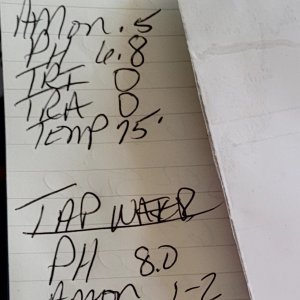 AMON .5
PH 6.8
TRI 0
TRA 0
TEMP 75°
TAP WATER
PH 8.0
AMON 1-2